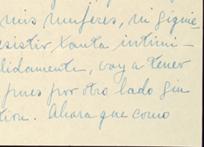 mis mujeres, ni siquie
esistir, Xanta intimi-
lidamente, voy a tener
pues por otro lado sin
tion. Ahora que como